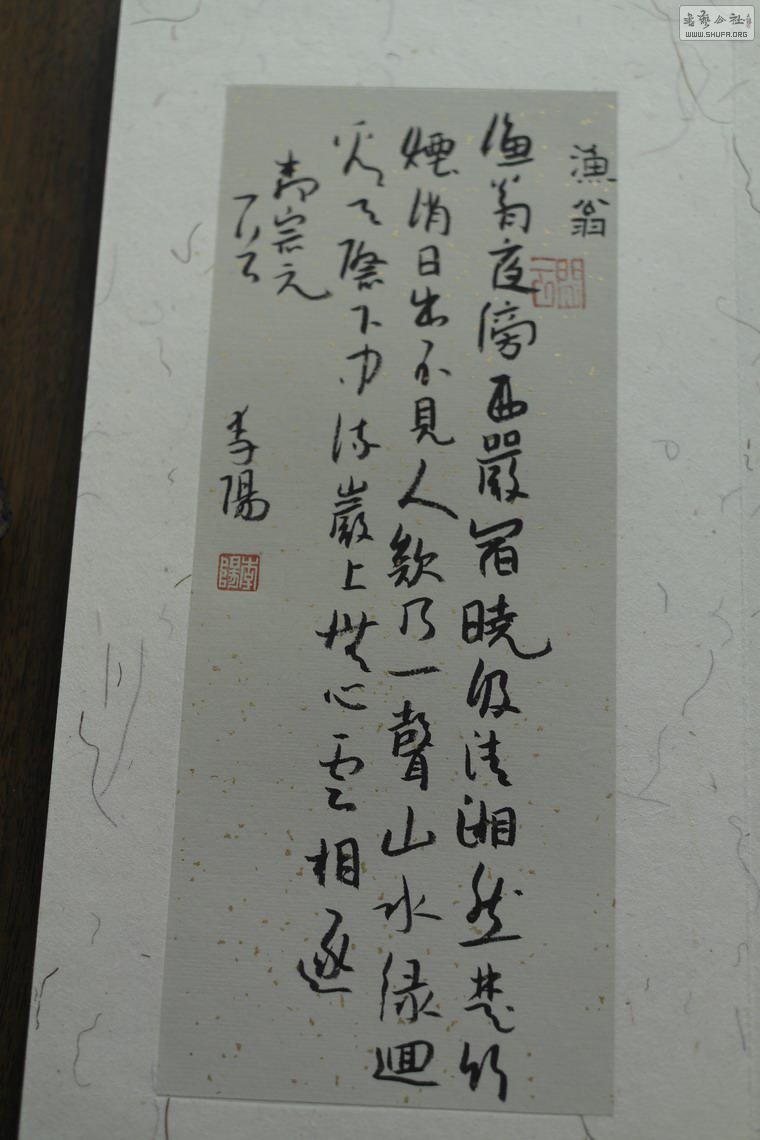 漁翁
漁翁夜傍西巖宿曉汲清湘然楚竹
煙消日出不見人欸乃一聲山水緑迴
看天際下中流巖上無心雲相逐
柳宗元
李陽
李陽
書藝公社
WWW.SHUFA.ORG